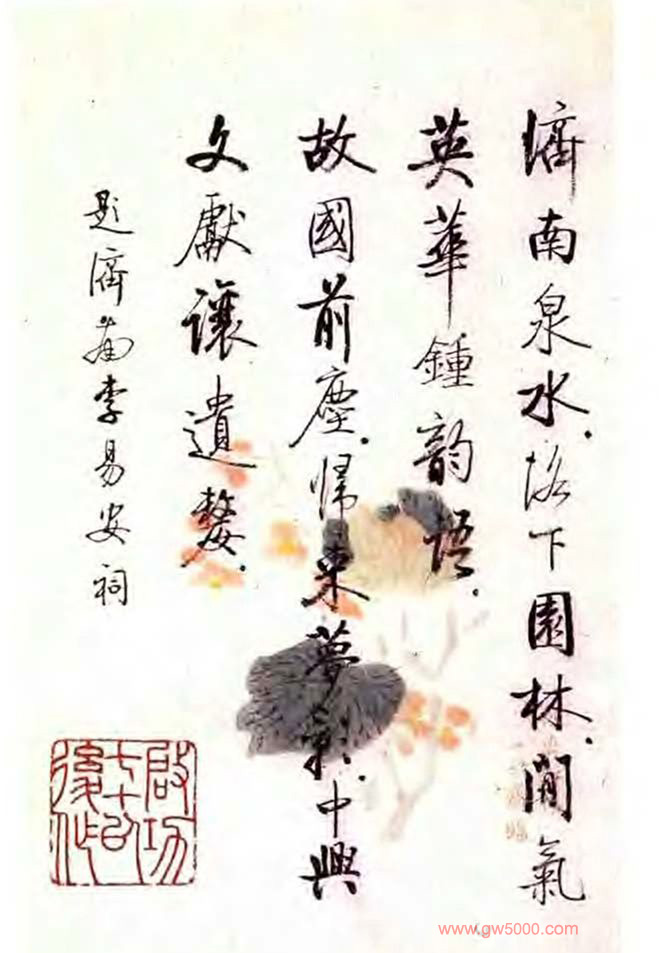 濟南泉水.洛下園林.閒氣
英華鍾韵語.
故國前塵.歸來夢影.中興
文獻讓遺嫠.
題濟南李易安祠
啟功
七十以
後作
www.gw5000.com